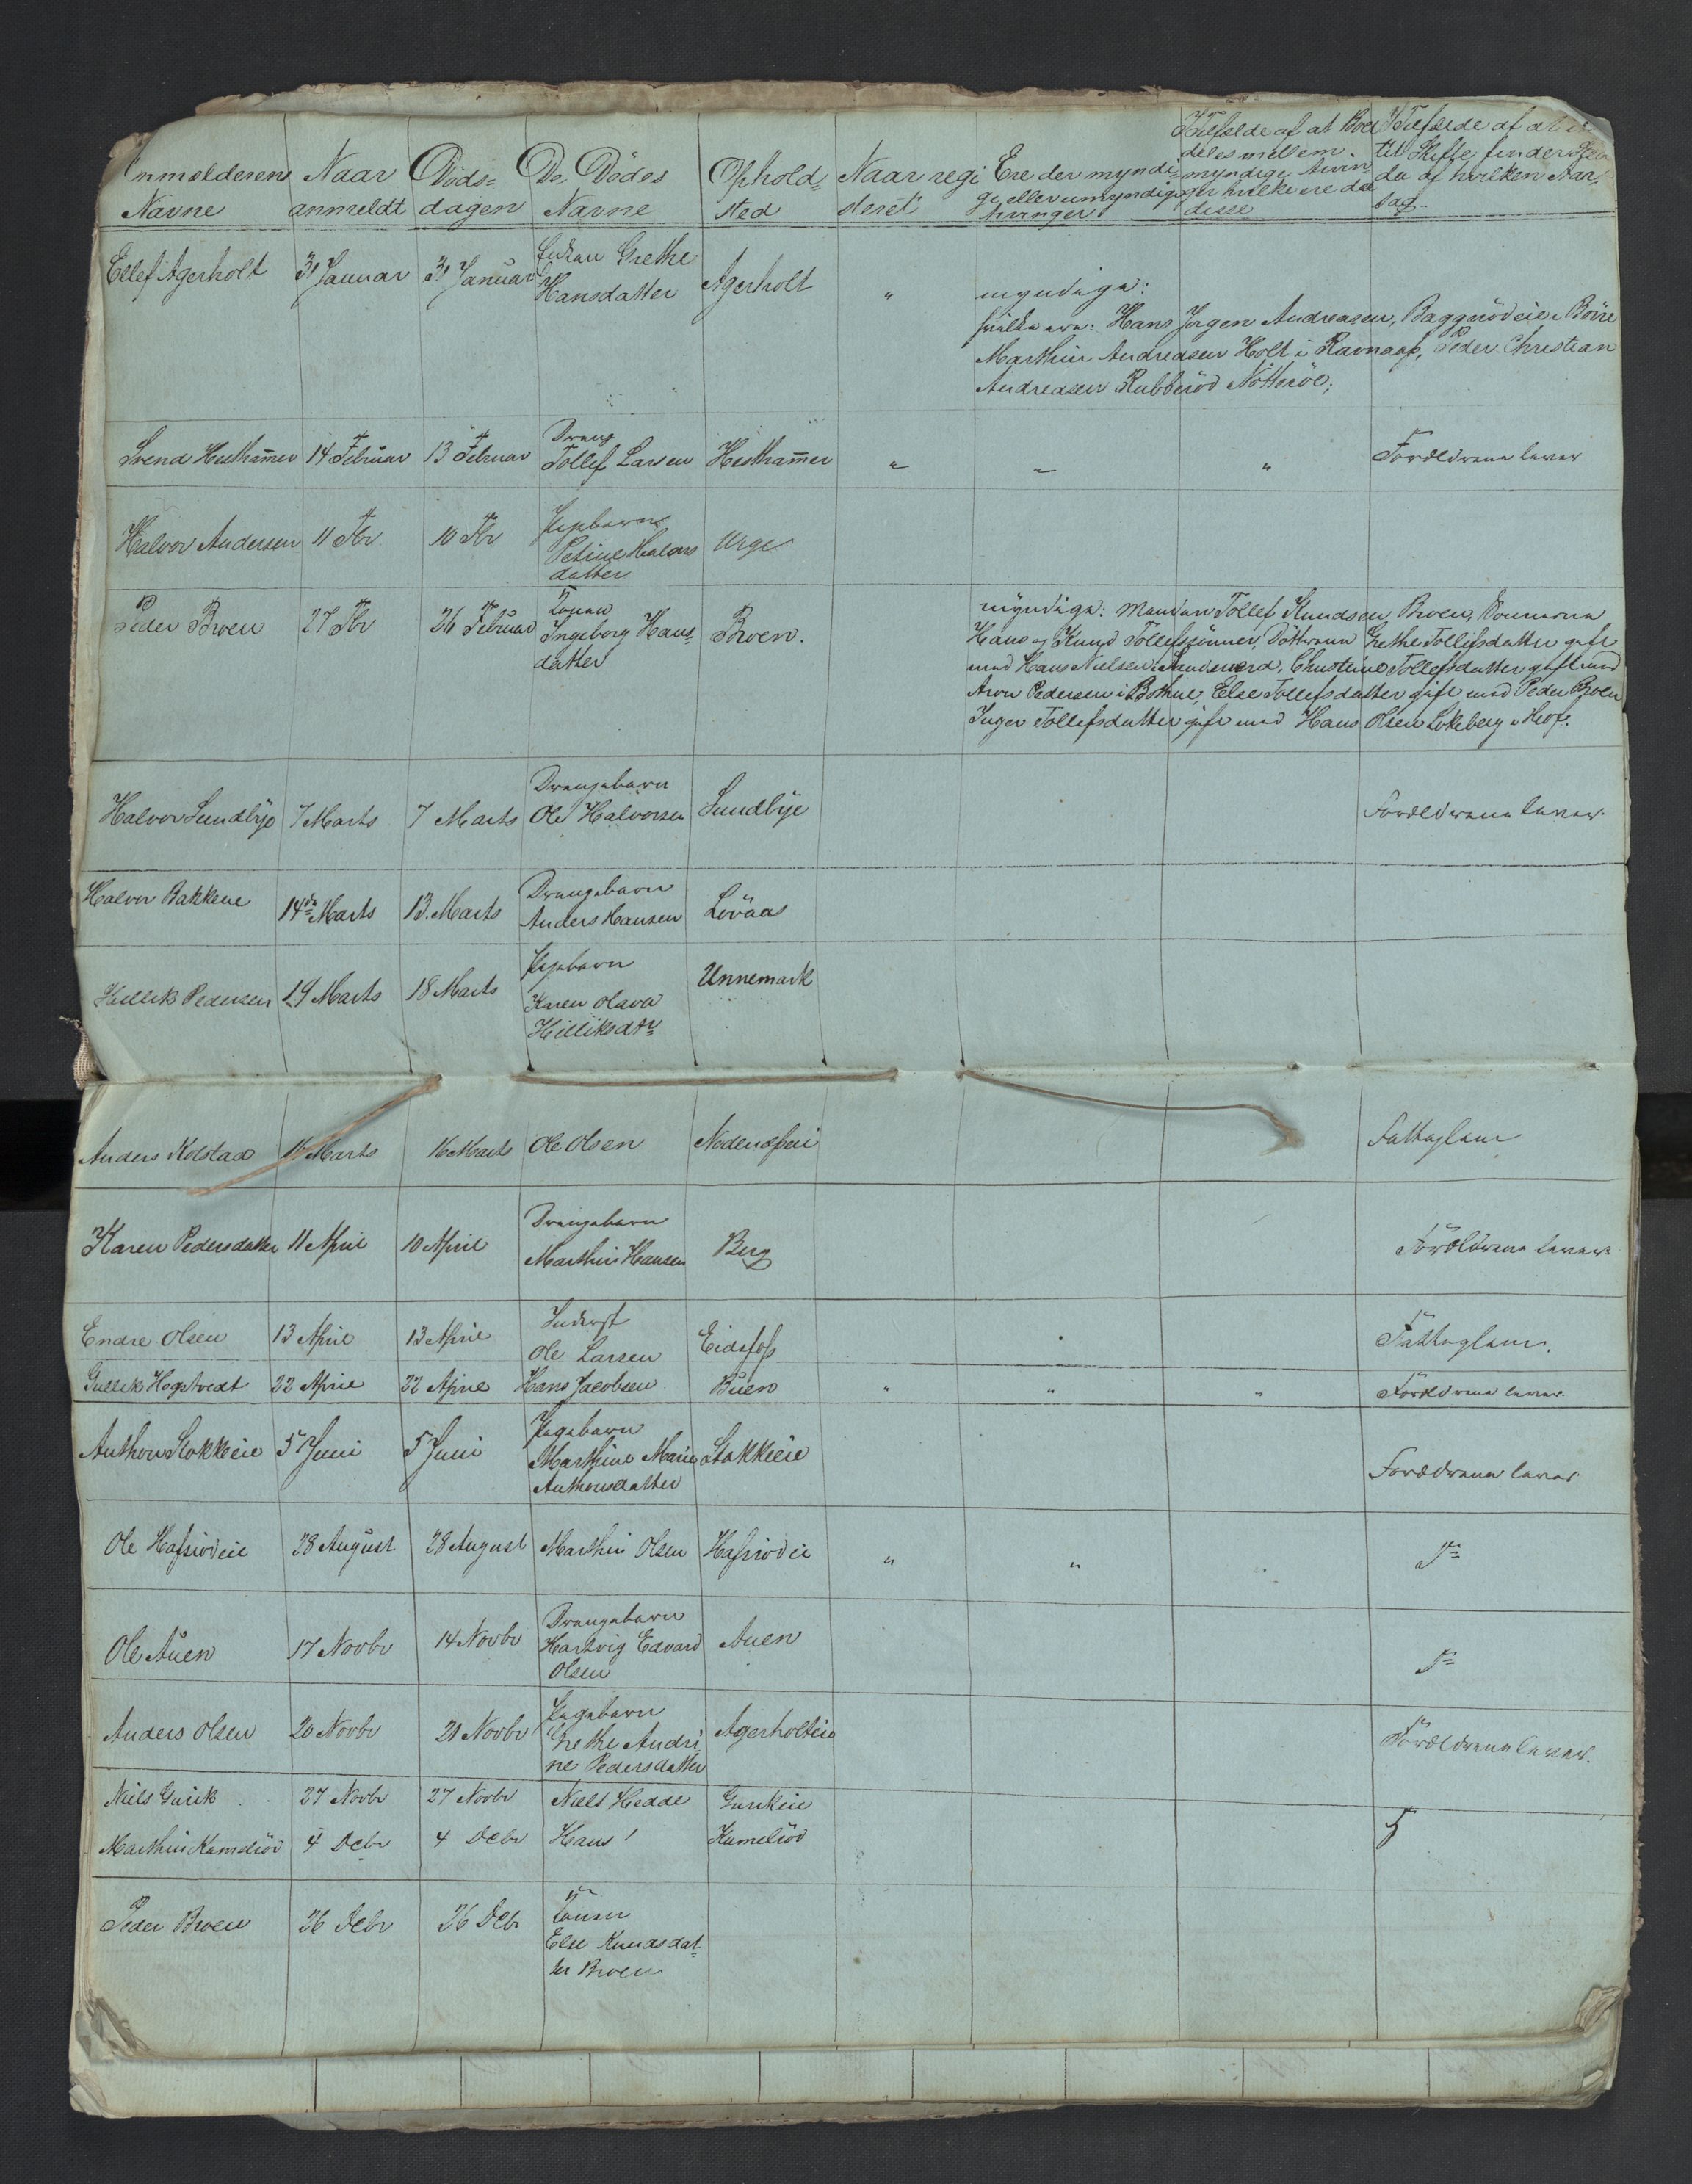 Anmelderens Navne | Naar anmeldt | Döds-dagen | De Dödes Navne | Ophold-sted | Naar regi steret | Ere der myndi-ge eller umyndige Arvinger | I Tilfælde af at Boet deles mellem myndige Arvin-ger hvilke ere da disse | I Tilfælde af at ei til Skifte finder Sted da af hvilken Aar-sag
Ellef Agerholt | 31 Januar | 31 Januar | Enkan Grethe Hansdatter | Agerholt | " | myndige:
hvilke ere: Hans Jørgen Andreasen, Baggerödeie i Börre
Marthin Andreasen Holt i Ravnaas, Peder Christian
Andreasen Rubberöd Nötteröe;
Svend Hestham̄er | 14 Februar | 13 Februar | Dreng Tollef Larsen | Hestham̄er | " | " | " | Forældrene lever
Halvor Andersen | 11 Fbr | 10 Fbr | Pigebarn Petine Halvors datter | Urge
Peder Broen | 27 Fbr | 26 Februar | Konen Ingeborg Hans-datter | Broen. | myndige: Manden Tollef Knudsen Broen, Sönnerne
Hans og Knud Tollefssönner, Döttrene Grethe Tollefsdatter gift
med Hans Nielsen i Sandeherred, Christine Tollefsdatter gift med
Aron Pedersen i Bothne, Else Tollefsdatter gift med Peder Broen
Inger Tollefsdatter gift med Hans Olsen Lökeberg i Hof.
Halvor Sundbÿe | 7 Marts | 7 Marts | Drengebarn Ole Halvorsen | Sundbÿe | Forældrene lever.
Halvor Bakkene | 14de Marts | 13. Marts | Drengebarn Anders Hansen | Lövaas
Hellik Pedersen | 19 Marts | 18 Marts | Pigebarn Karen Olava Helliksdtr | Unnemark
Anders Kolstad | Marts | 16 Marts | Ole Olsen | Fattiglem
Karen Pedersdatter | 11 April | 10 April | Drengebarn Marthin Hansen | Berg | Forældrene lever
Endre Olsen | 13 April | 13 April | Inderst Ole Larsen | Eidsfoss | " | Fattiglem.
Gullik Hogstvedt | 22 April | 22 April | Hans Jacobsen | Buen | " | " | " | Forældrene lever.
Anthon Stokkeeie | 5 Juni | 5 Juni | Pigebarn Marthine Marie Anthonsdatter | Stokkeeie | Forældrene lever
Ole Hafsrödeie | 28 August | 28 August | Marthin Olsen | Hafsrödeie | " | " | " | Do
Ole Auen | 17 Novbr | 14 Novbr | Drengebarn Hartvig Edvard Olsen | Auen | Do
Anders Olsen | 20 Novbr | 20 Novbr | Pigebarn Grethe Andri ne Pedersdatter | Agerholteie | Forældrene lever.
Niels Gurik | 27 Novbr | 27 Novbr | Niels Hedde | Gurikeie
Marthin Kamelröd | 4 Debr | 4 Debr | Hans | Kamelröd
Peder Broen | 26 Debr | 26 Debr | Konen Else Knudsdat-ter Broen